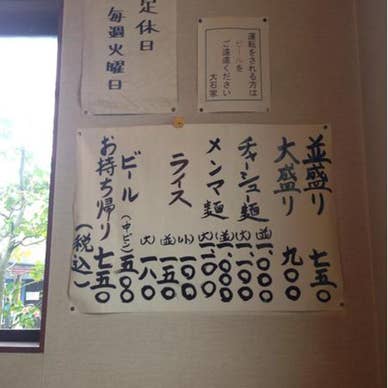 定休日
毎週火曜日
運転をされる方は
ビールを
ご遠慮ください
大石家
並盛り 七五〇
大盛り 九〇〇
チャーシュー麺 (並) 一、〇〇〇
(大)
メンマ麺 (並)
(大)
ライス (小) 一〇〇
(並) 一五〇
(大) 一八〇
ビール (中ビン) 五〇〇
お持ち帰り 七五〇
(税込)